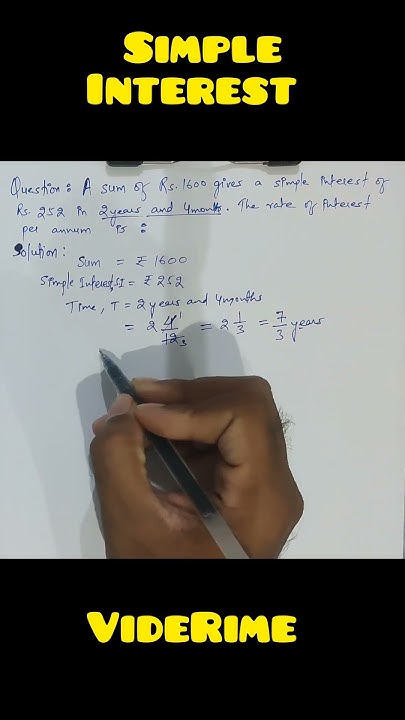 SIMPLE
INTEREST
Question: A sum of Rs. 1600 gives a simple interest of
Rs. 252 in 2 years and 4 months. The rate of interest
per annum is :
Solution:
Sum = ₹ 1600
Simple Interest, SI = ₹ 252
Time, T = 2 years and 4 months
= 2 4/12 1 3 = 2 1/3 = 7/3 years
VIDERIME